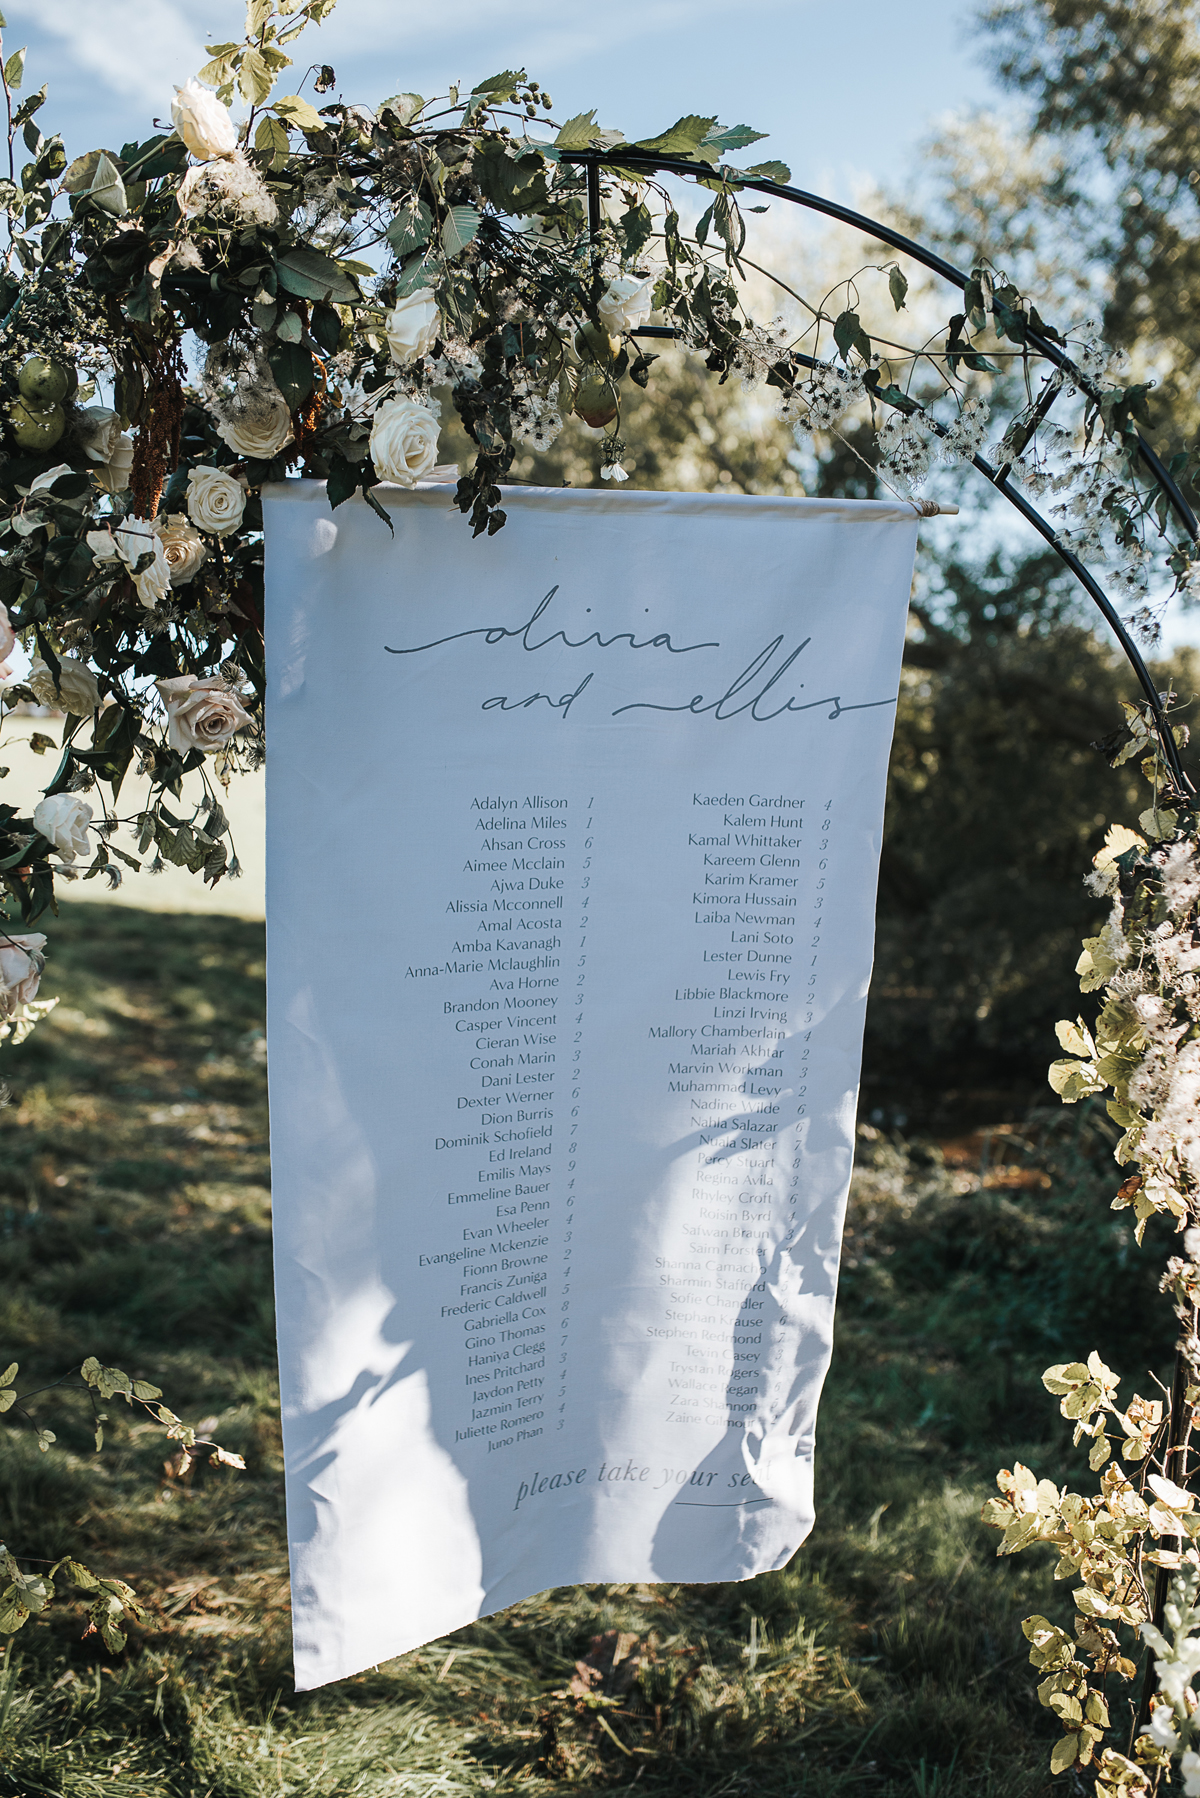 olivia
and ellis
Adalyn Allison 1
Adelina Miles 1
Ahsan Cross 6
Aimee Mcclain 5
Ajwa Duke 3
Alissia Mcconnell 4
Amal Acosta 2
Amba Kavanagh 1
Anna-Marie Mclaughlin 5
Ava Horne 2
Brandon Mooney 3
Casper Vincent 4
Cieran Wise 2
Conah Marin 3
Dani Lester 2
Dexter Werner 6
Dion Burris 6
Dominik Schofield 7
Ed Ireland 8
Emilis Mays 9
Emmeline Bauer 4
Esa Penn 6
Evan Wheeler 4
Evangeline Mckenzie 3
Fionn Browne 2
Francis Zuniga 4
Frederic Caldwell 5
Gabriella Cox 8
Gino Thomas 6
Haniya Clegg 7
Ines Pritchard 3
Jaydon Petty 4
Jazmin Terry 5
Juliette Romero 4
Juno Phan 3
Kaeden Gardner 4
Kalem Hunt 8
Kamal Whittaker 3
Kareem Glenn 6
Karim Kramer 5
Kimora Hussain 3
Laiba Newman 4
Lani Soto 2
Lester Dunne 1
Lewis Fry 5
Libbie Blackmore 2
Linzi Irving 3
Mallory Chamberlain 4
Mariah Akhtar 2
Marvin Workman 3
Muhammad Levy 2
Nadine Wilde 6
Nahla Salazar 6
Nuala Slater 7
Percy Stuart 8
Regina Avila 3
Rhyley Croft 6
Roisin Byrd 4
Safwan Braun 3
Saim Forster
Shanna Camacho
Sharmin Stafford
Sofie Chandler
Stephan Krause 6
Stephen Redmond 7
Tevin Casey 3
Trystan Rogers
Wallace Regan
Zara Shannon
Zaine Gilmour
please take your seat